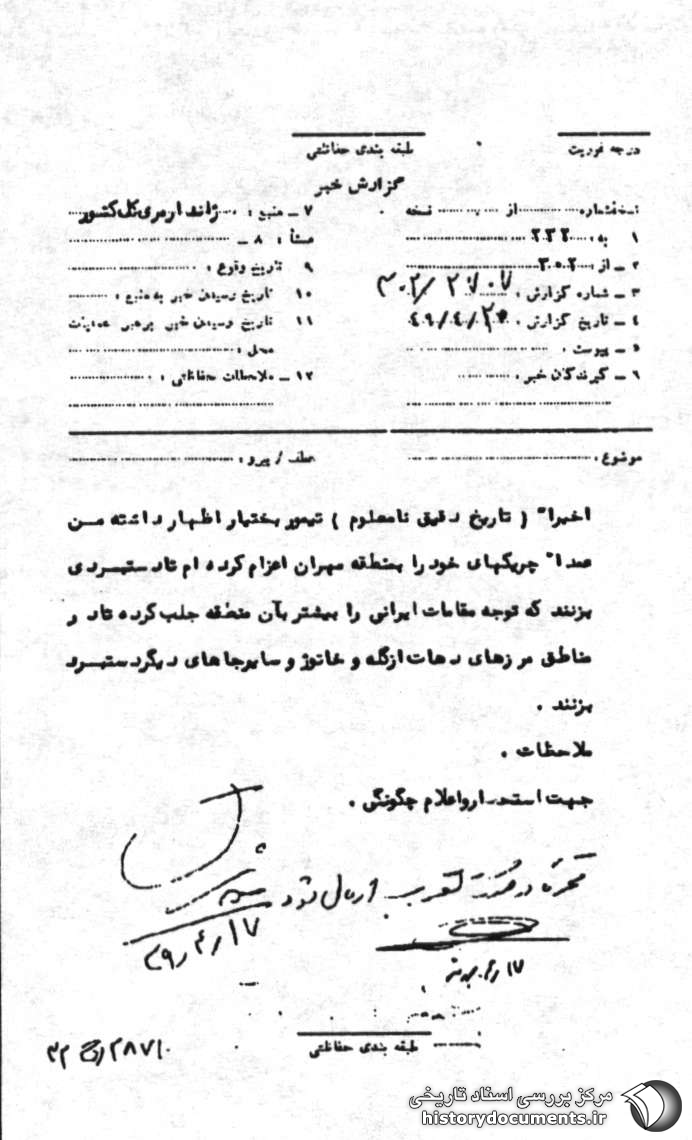 درجه فوریت
طبقه بندی حفاظتی
گزارش خبر
نسخه شماره از نسخه
۱ به : ۲۳۲
۲ ـ از : ۳۰۲
۳ ـ شماره گزارش : ۳۰۲/۲۷۰۷
۴ ـ تاریخ گزارش : ۴۹/۴/۲۰
۵ ـ پیوست :
۶ ـ گیرندگان خبر :
۷ ـ منبع : ژاندارمری کل کشور
۸ ـ منشأ :
۹ تاریخ وقوع :
۱۰ تاریخ رسیدن خبر به منبع :
۱۱ تاریخ رسیدن خبر برهبر عملیات
محل :
۱۲ ـ ملاحظات حفاظتی :
موضوع :
عطف / پیرو :
اخیرا" ( تاریخ دقیق نامعلوم ) تیمور بختیار اظهار داشته من
عمدا" چریکهای خود را بمنطقه مهران اعزام کرده ام تا دستبردی
بزنند که توجه مقامات ایرانی را بیشتر بآن منطقه جلب کرده تا در
مناطق مرزهای دهات ازگله و خانوژ و سایر جاهای دیگر دستبرد
بزنند .
ملاحظات .
جهت استحضار و اعلام چگونگی .
ارسال شود
۱۷
۱۷ر۴ر۴۹
طبقه بندی حفاظتی
مرکز بررسی اسناد تاریخی
historydocuments.ir